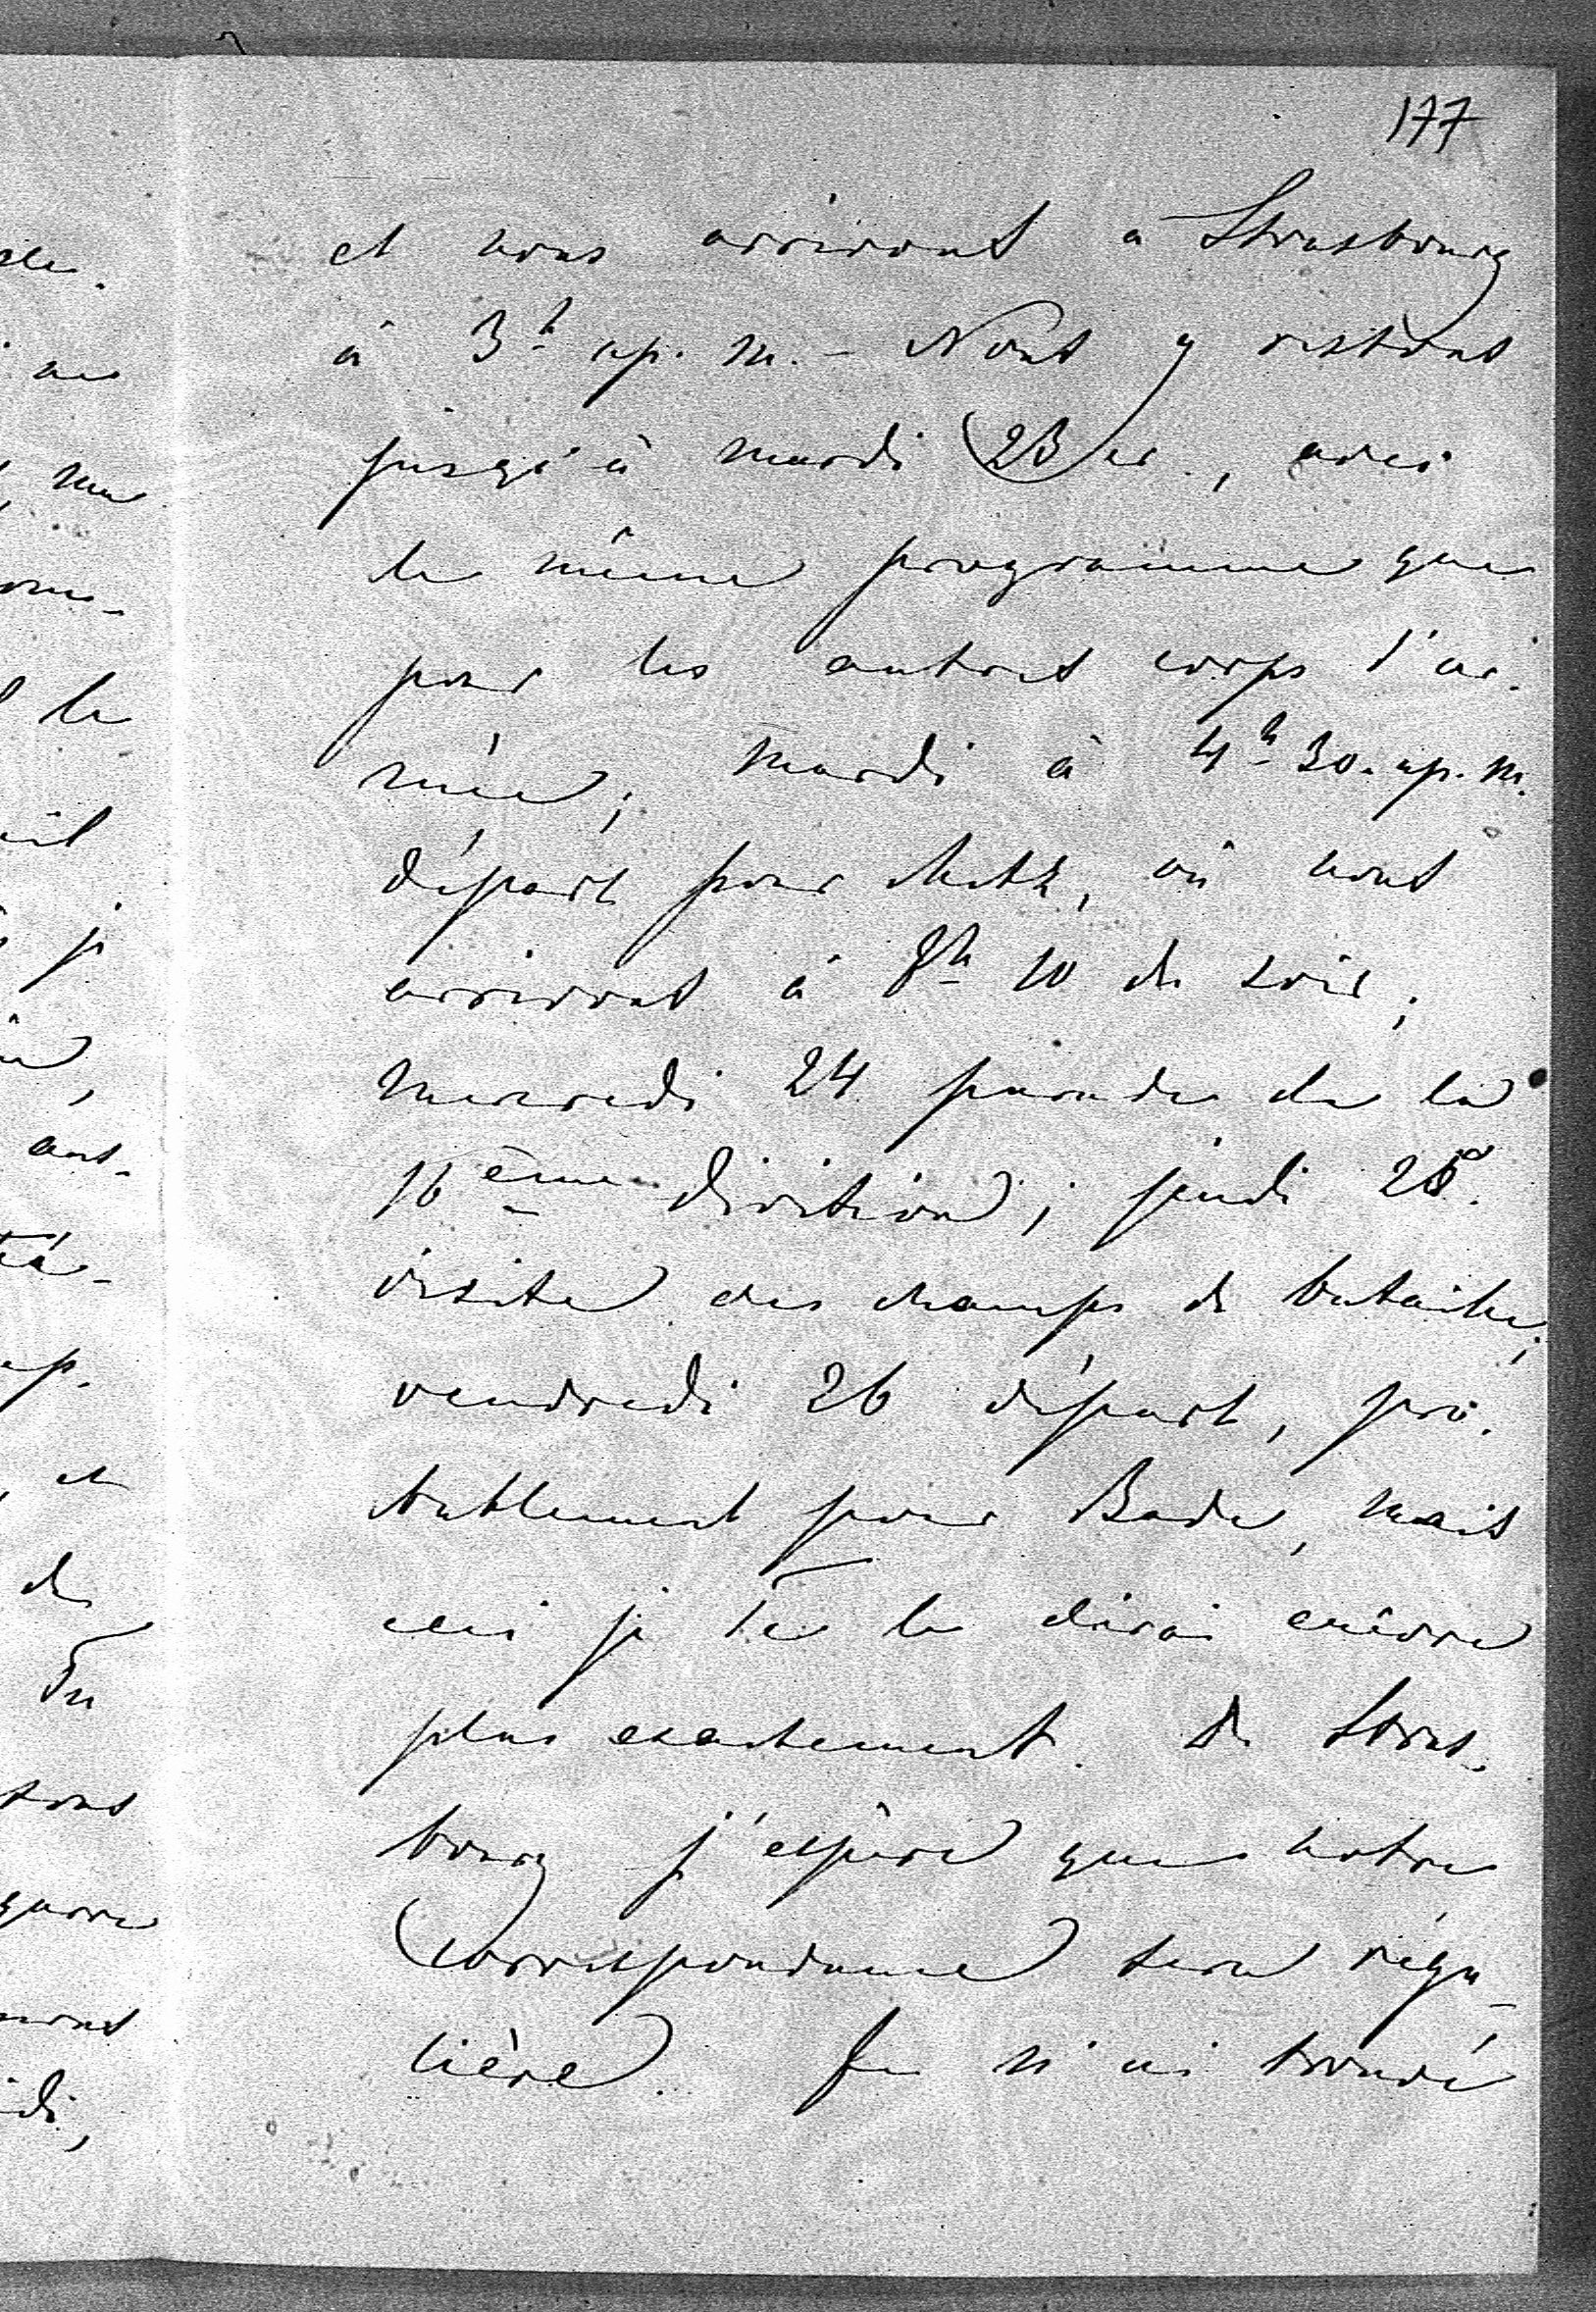 177
et nous arrivons à Strasbourg
à 3h ap. m. - Nous y restons
jusqu'à mardi 23 cr., avec
le même programme que
pour les autres corps d'ar-
mée; mardi à 4h 30. ap. m.
départ pour Metz, où nous
arrivons à 8h 10 du soir;
mercredi 24 parade de la
16ème division; jeudi 25.
visite des champs de bataille;
vendredi 26 départ, pro-
bablement pour Bade, mais
ceci je te le dirai encore
plus exactement. De Stras-
bourg j'espère que notre
correspondance sera régu-
lière. Je n'ai trouvé